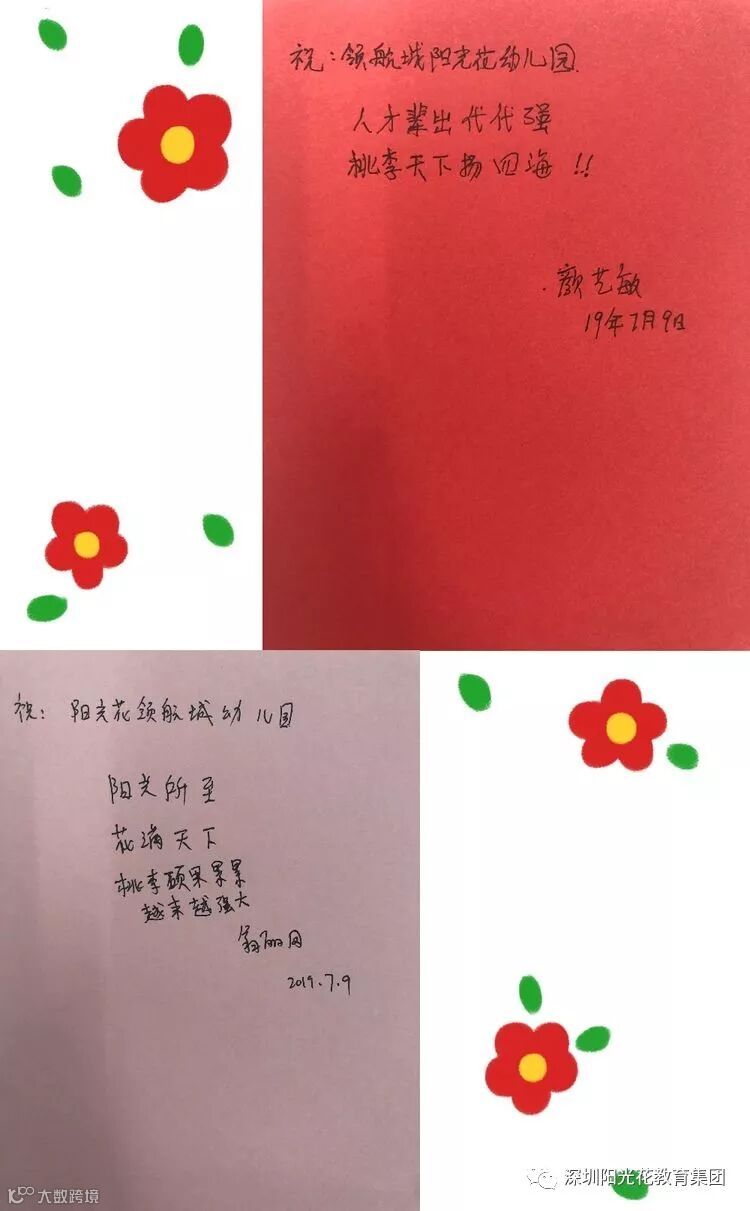 祝：领航城阳光花幼儿园
人才辈出代代强
桃李天下扬四海!!
颜艺敏
19年7月9日
祝：阳光花领航城幼儿园
阳光所至
花满天下
桃李硕果累累
越来越强大
2019.7.9
深圳阳光花教育集团
大数跨境